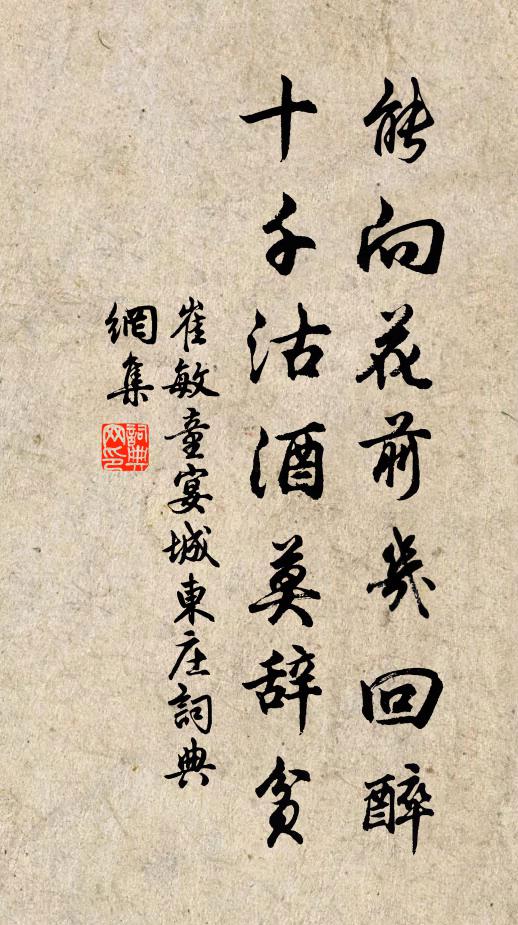 能向花前幾回醉
十千沽酒莫辞貧
崔敏童宴城東庄詞典
網集
詞典
网印